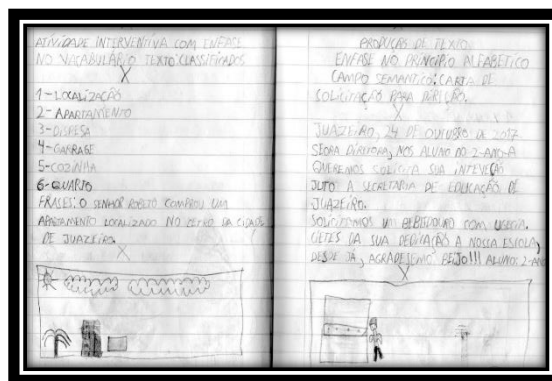 ATIVIDADE INTERVENTIVA COM ENFASE
NO VACABULÁRIO TEXTO: CLASSIFICADOS
X
1-LOCALIZAÇÃO
2-APARTAMENTO
3-DISPESA
4-GARRAGE
5-COZINHA
6-QUARTO
FRASES: O SENHOR ROBETO COMPROU UM
APARTAMENTO LOCALIZADO NO CETRO DA CIDADE
DE JUAZEIRO.
X
PRODUÇÃO DE TEXTO
ENFASE NO PRINCIPIO ALFABETICO
CAMPO SEMANTICO: CARTA DE
SOLICITAÇÃO PARA DIREÇÃO.
X
JUAZEIRO, 24 DE OUTUBRO DE 2017.
DIRETORA, NOS ALUNO DO 2-ANO-A
QUEREMOS SOLICITA SUA INTEVEÇÃO
JUTO A SECRETARIA DE EDUCAÇÃO DE
JUAZEIRO.
SOLICITAMOS UM BEBEDOURO COM
DA SUA DEDICAÇÃO A NOSSA ESCOLA,
DESDE JÁ, AGRADESEMO BEIJO!!! ALUNOS: 2-ANO